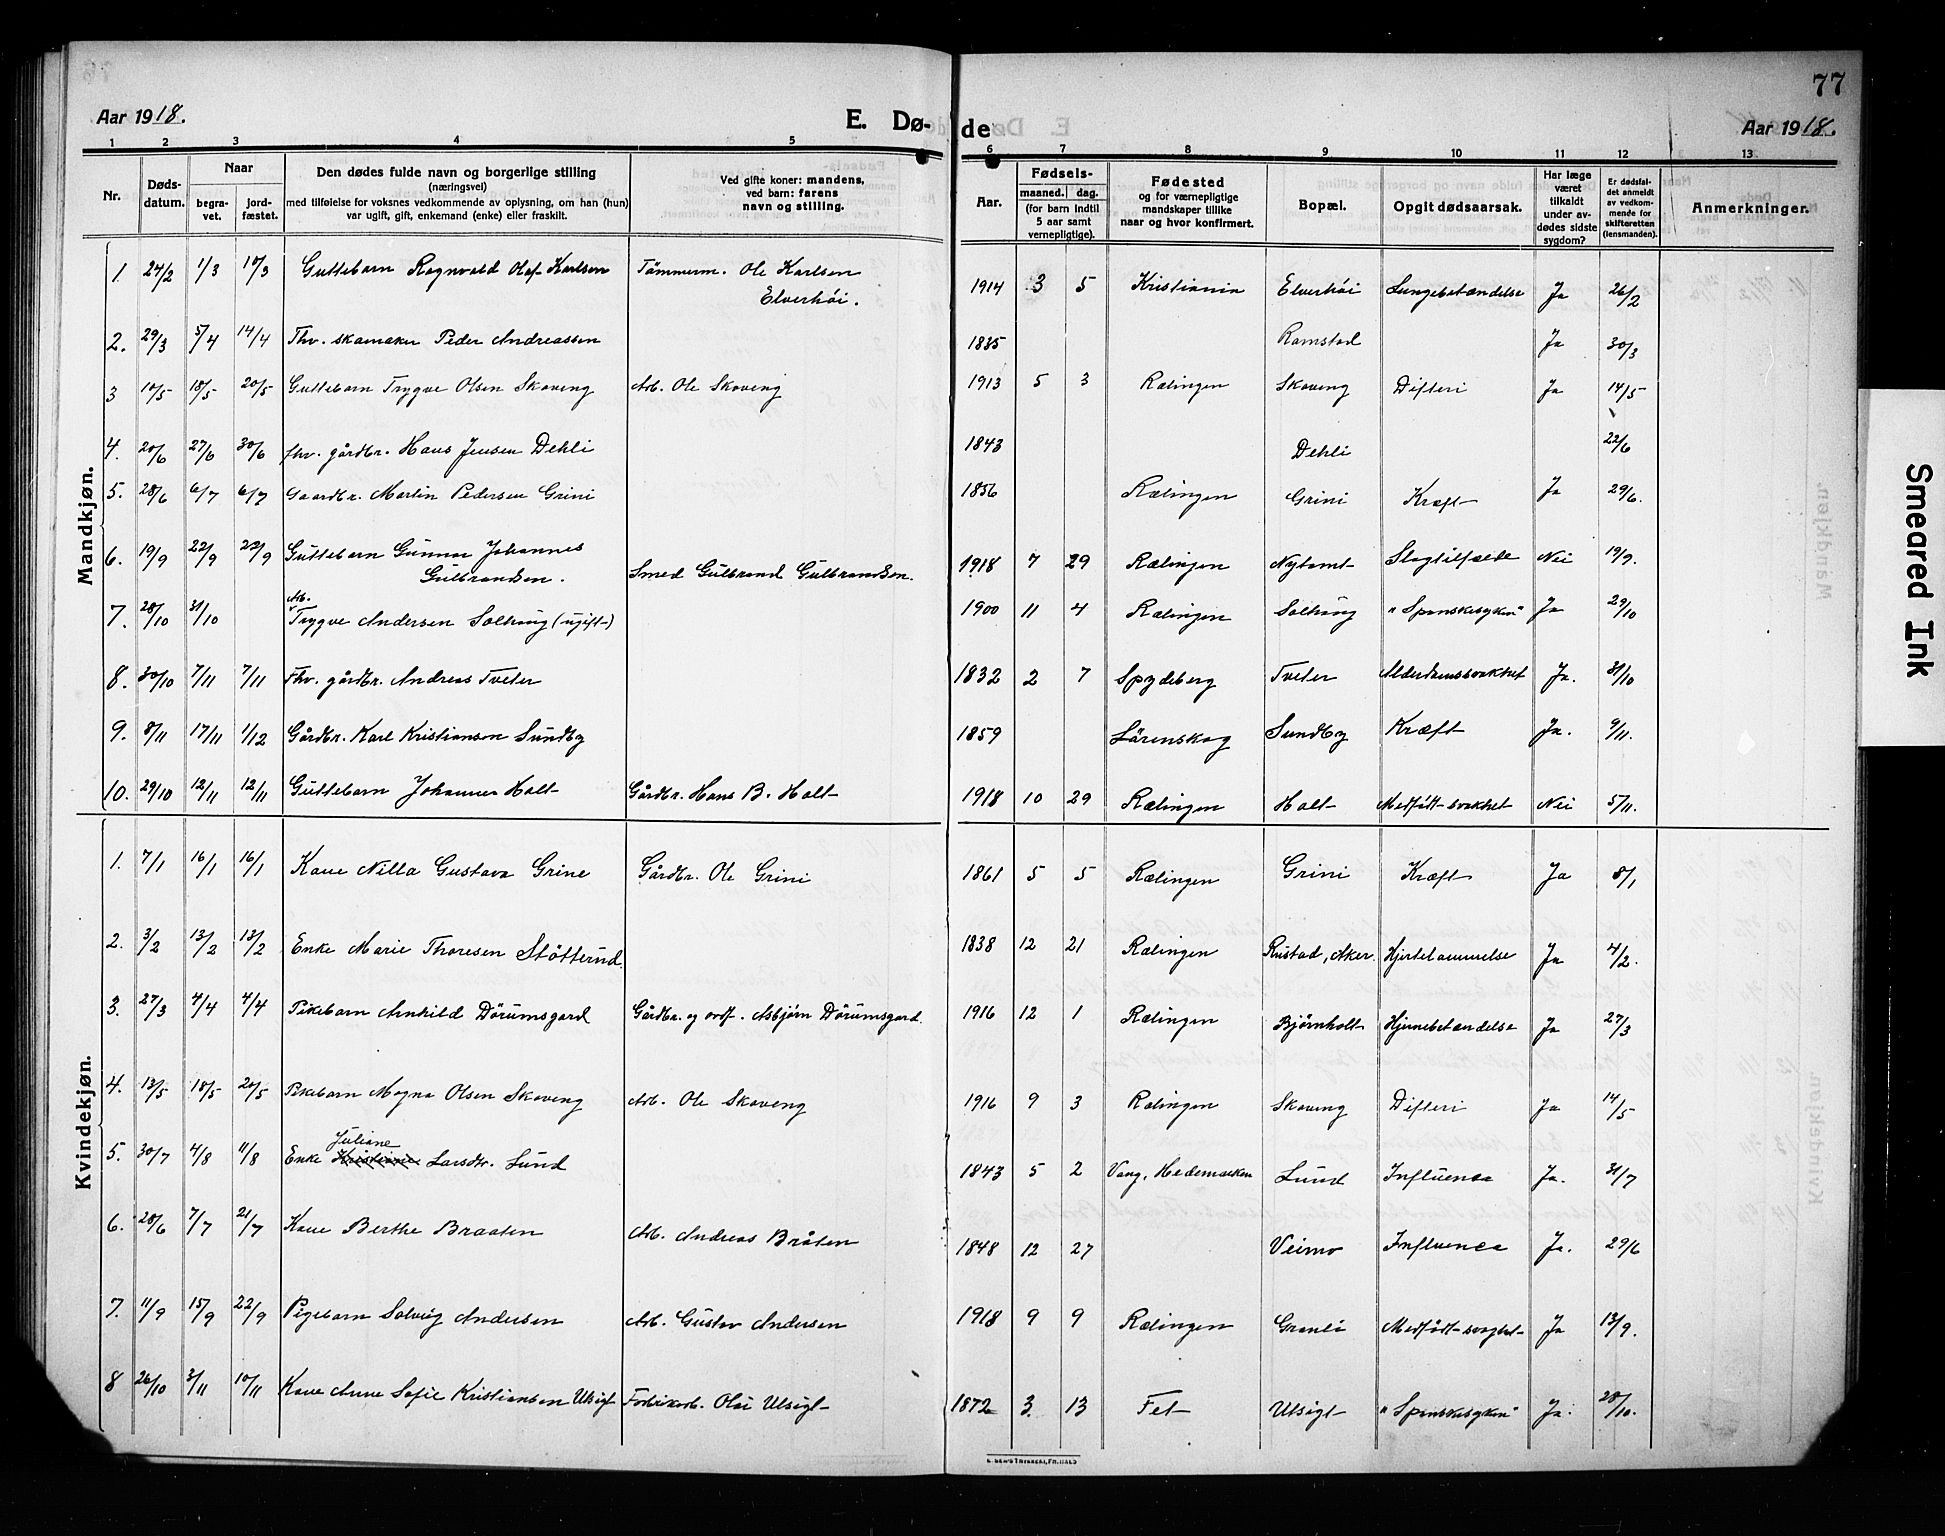 77
Aar 1918.
E. Dø-
de
Aar 1918.
1 2 3 4 5 6 7 8 9 10 11 12 13
Nr.
Døds-
datum.
Naar
begra-
vet.
jord-
fæstet.
Den dødes fulde navn og borgerlige stilling
(næringsvei)
med tilføielse for voksnes vedkommende av oplysning, om han (hun)
var ugift, gift, enkemand (enke) eller fraskilt.
Ved gifte koner: mandens,
ved barn: farens
navn og stilling.
Aar.
Fødsels-
maaned. dag.
(for barn indtil
5 aar samt
vernepligtige).
Fødested
og for værnepligtige
mandskaper tillike
naar og hvor konfirmert.
Bopæl.
Opgit dødsaarsak.
Har læge
været
tilkaldt
under av-
dødes sidste
sygdom?
Er dødsfal-
det anmeldt
av vedkom-
mende for
skifteretten
(lensmanden).
Anmerkninger.
Mandkjøn.
1. 24/2 1/3 10/3 Guttebarn Ragnvald Olaf Karlsen Tömmerm. Ole Karlsen
Elverhöi.
1914 3 5 Kristiania Elverhöi Lungebetændelse Ja 26/2
2. 29/3 5/4 14/4 Fhv. skomaker Peder Andreassen 1835 Ramstad Ja 30/3
3 10/5 18/5 20/5 Guttebarn Trygve Olsen Skoveng Arb. Ole Skoveng 1913 5 3 Rælingen Skoveng Difteri Ja 14/5
4. 20/6 27/6 30/6 fhv. gårdbr. Hans Jensen Dehli 1843 Dehli 22/6
5. 28/6 6/7 6/7 Gaardbr. Martin Pedersen Grini 1856 Rælingen Grini Kræft Ja 29/6.
6. 19/9 22/9 22/9 Guttebarn Gunnar Johannes
Gulbrandsen. Smed Gulbrand Gulbrandsen. 1918 7 29 Rælingen Nytomt Slagtilfælde Nei 19/9.
7. 28/10 31/10 Arb. Trygve Andersen Solhaug (ugift) 1900 11 4 Rælingen Solhaug "Spanskesyken" Ja 29/10
8. 30/10 7/11 7/11 Fhv. gårdbr. Andreas Tveter 1832 2 7 Spydeberg Tveter Alderdomssvakhet Ja. 31/10
9. 8/11 17/11 1/12 Gårdbr. Karl Kristiansen Sundby 1859 Lörenskog Sundby Kræft Ja. 9/11.
10. 29/10 12/11 12/11 Guttebarn Johannes Holt Gårdbr. Hans B. Holt 1918 10 29 Rælingen Holt Medfödt svakhet Nei 5/11.
Kvindekjøn.
1. 7/1 16/1 16/1 Kone Nilla Gustava Grine Gårdbr. Ole Grini 1861 5 5 Rælingen Grini Kræft Ja 8/1
2. 3/2 13/2 13/2 Enke Marie Thoresen Stötterud. 1838 12 21 Rælingen Rustad, Aker. Hjertelammelse Ja 4/2.
3. 27/3 4/4 4/4 Pikebarn Arnhild Dörumsgard Gårdbr. og ordf. Asbjørn Dörumsgard. 1916 12 1 Rælingen Bjørnholt Hjernebetændelse Ja 27/3
4. 13/5 18/5 20/5 Pikebarn Magna Olsen Skoveng Arb. Ole Skoveng 1916 9 3 Rælingen Skoveng Difteri Ja 14/5
5. 30/7 4/8 11/8 Enke Juliane Kristiane Larsdtr. Lund 1843 5 2 Vang, Hedemarken Lund Influensa Ja. 31/7
6. 28/6 7/7 21/7 Kone Berthe Braaten Arb. Andreas Bråten 1848 12 27 Veimo Influensa Ja. 29/6
7. 11/9 15/9 22/9 Pigebarn Solveig Andersen Arb. Gustav Andersen 1918 9 9 Rælingen Granli Medfödt svaghet Ja 13/9.
8 26/10 3/11 10/11 Kone Anne Sofie Kristiansen Utsigt Fabrikarb. Olai Utsigt 1872 3. 13 Fet Utsigt "Spanskesyken" Ja. 28/10.
Smeared Ink